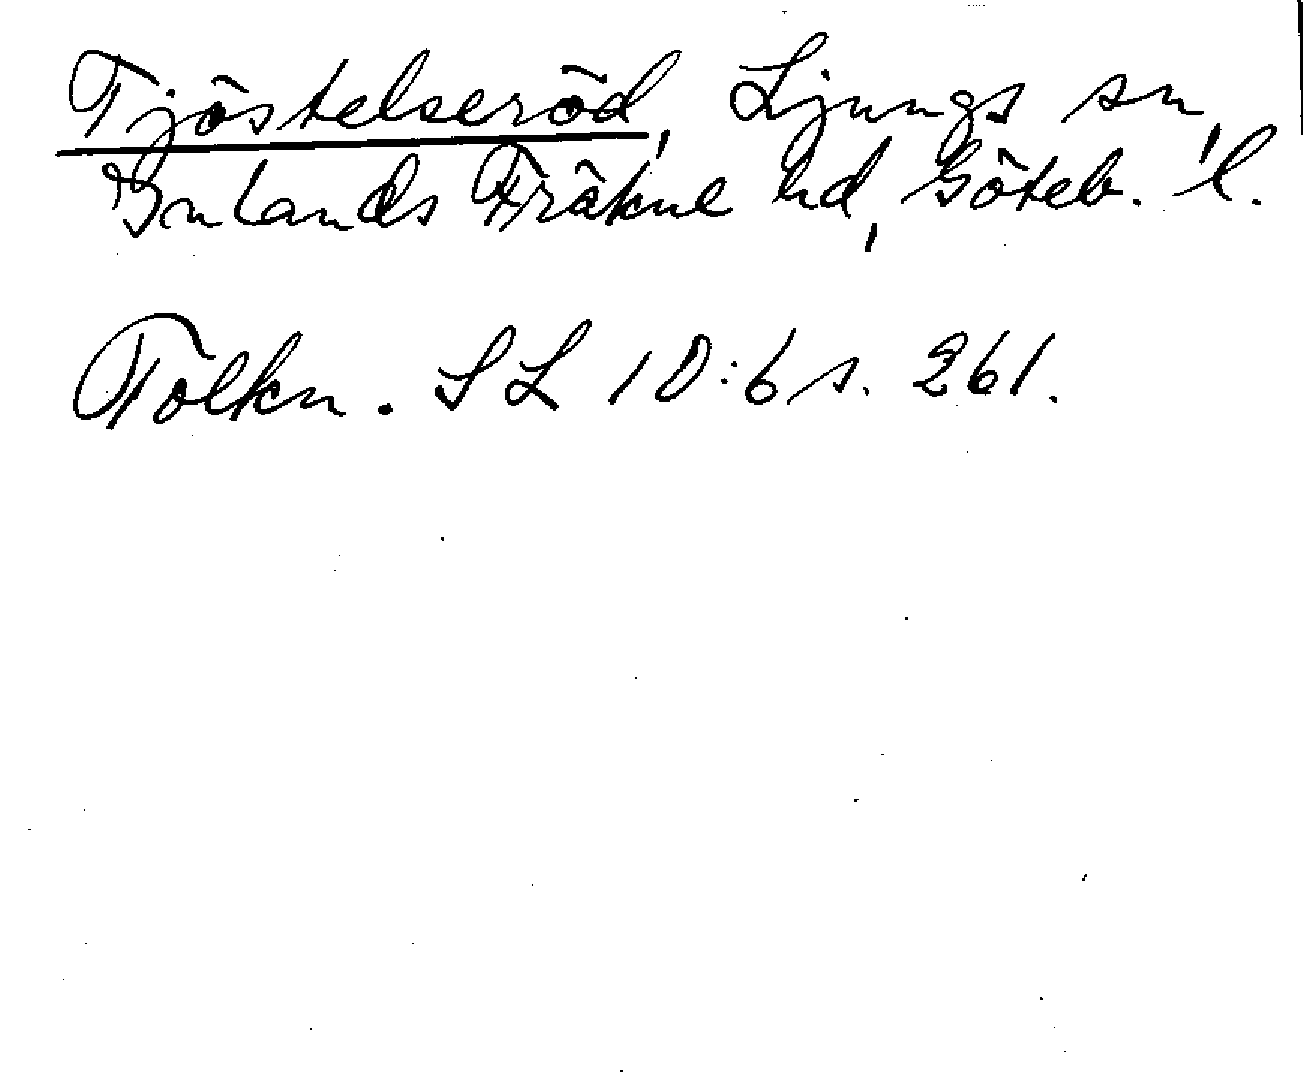 Tjöstelseröd, Ljungs sn,
Inlands Fräkne hd, Göteb. l.
Tolkn. SL 10:6 s. 261.